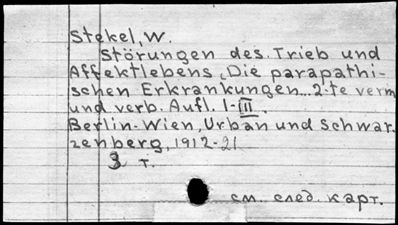 Stekel, W.
Störungen des Trieb und
Affektlebens, Die parapathi-
schen Erkrankungen... 2-te verm
und verb. Aufl. I-III.
Berlin-Wien, Urban und Schwar.
zenberg, 1912-21
3 т.
см. след. карт.